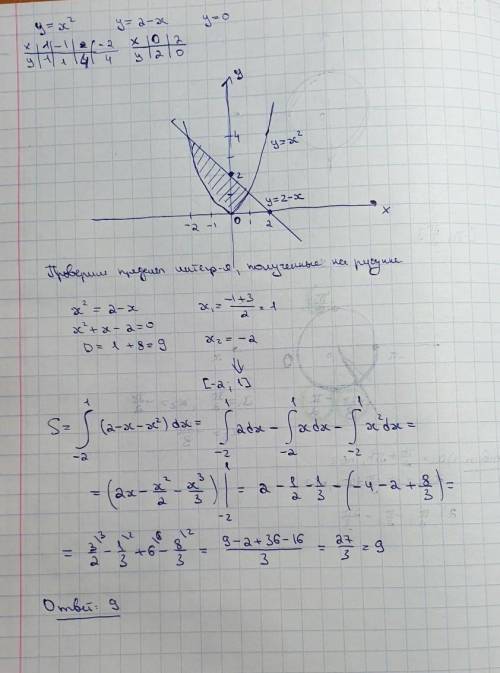 y = x² y = 2-x y=0
x | 1 | -1 | 2 | -2 x | 0 | 2
y | 1 | 1 | 4 | 4 y | 2 | 0
y
4
y=x²
2
y=2-x
-2 -1 0 1 2 x
Проверим пределы интегр-я, полученные на рисунке
x² = 2-x x₁ = \frac{-1+3}{2} = 1
x²+x-2=0 x₂ = -2
D = 1+8=9 ⇓
[-2; 1]
S = ∫_{-2}^{1} (2-x-x²)dx = ∫_{-2}^{1} 2dx - ∫_{-2}^{1} xdx - ∫_{-2}^{1} x²dx =
= (2x - \frac{x²}{2} - \frac{x³}{3}) |_{-2}^{1} = 2 - \frac{1}{2} - \frac{1}{3} - (-4 - 2 + \frac{8}{3}) =
= \frac{3}{2}\³ - \frac{1}{3}\² + 6\⁶ - \frac{8}{3}\² = \frac{9-2+36-16}{3} = \frac{27}{3} = 9
Ответ: 9